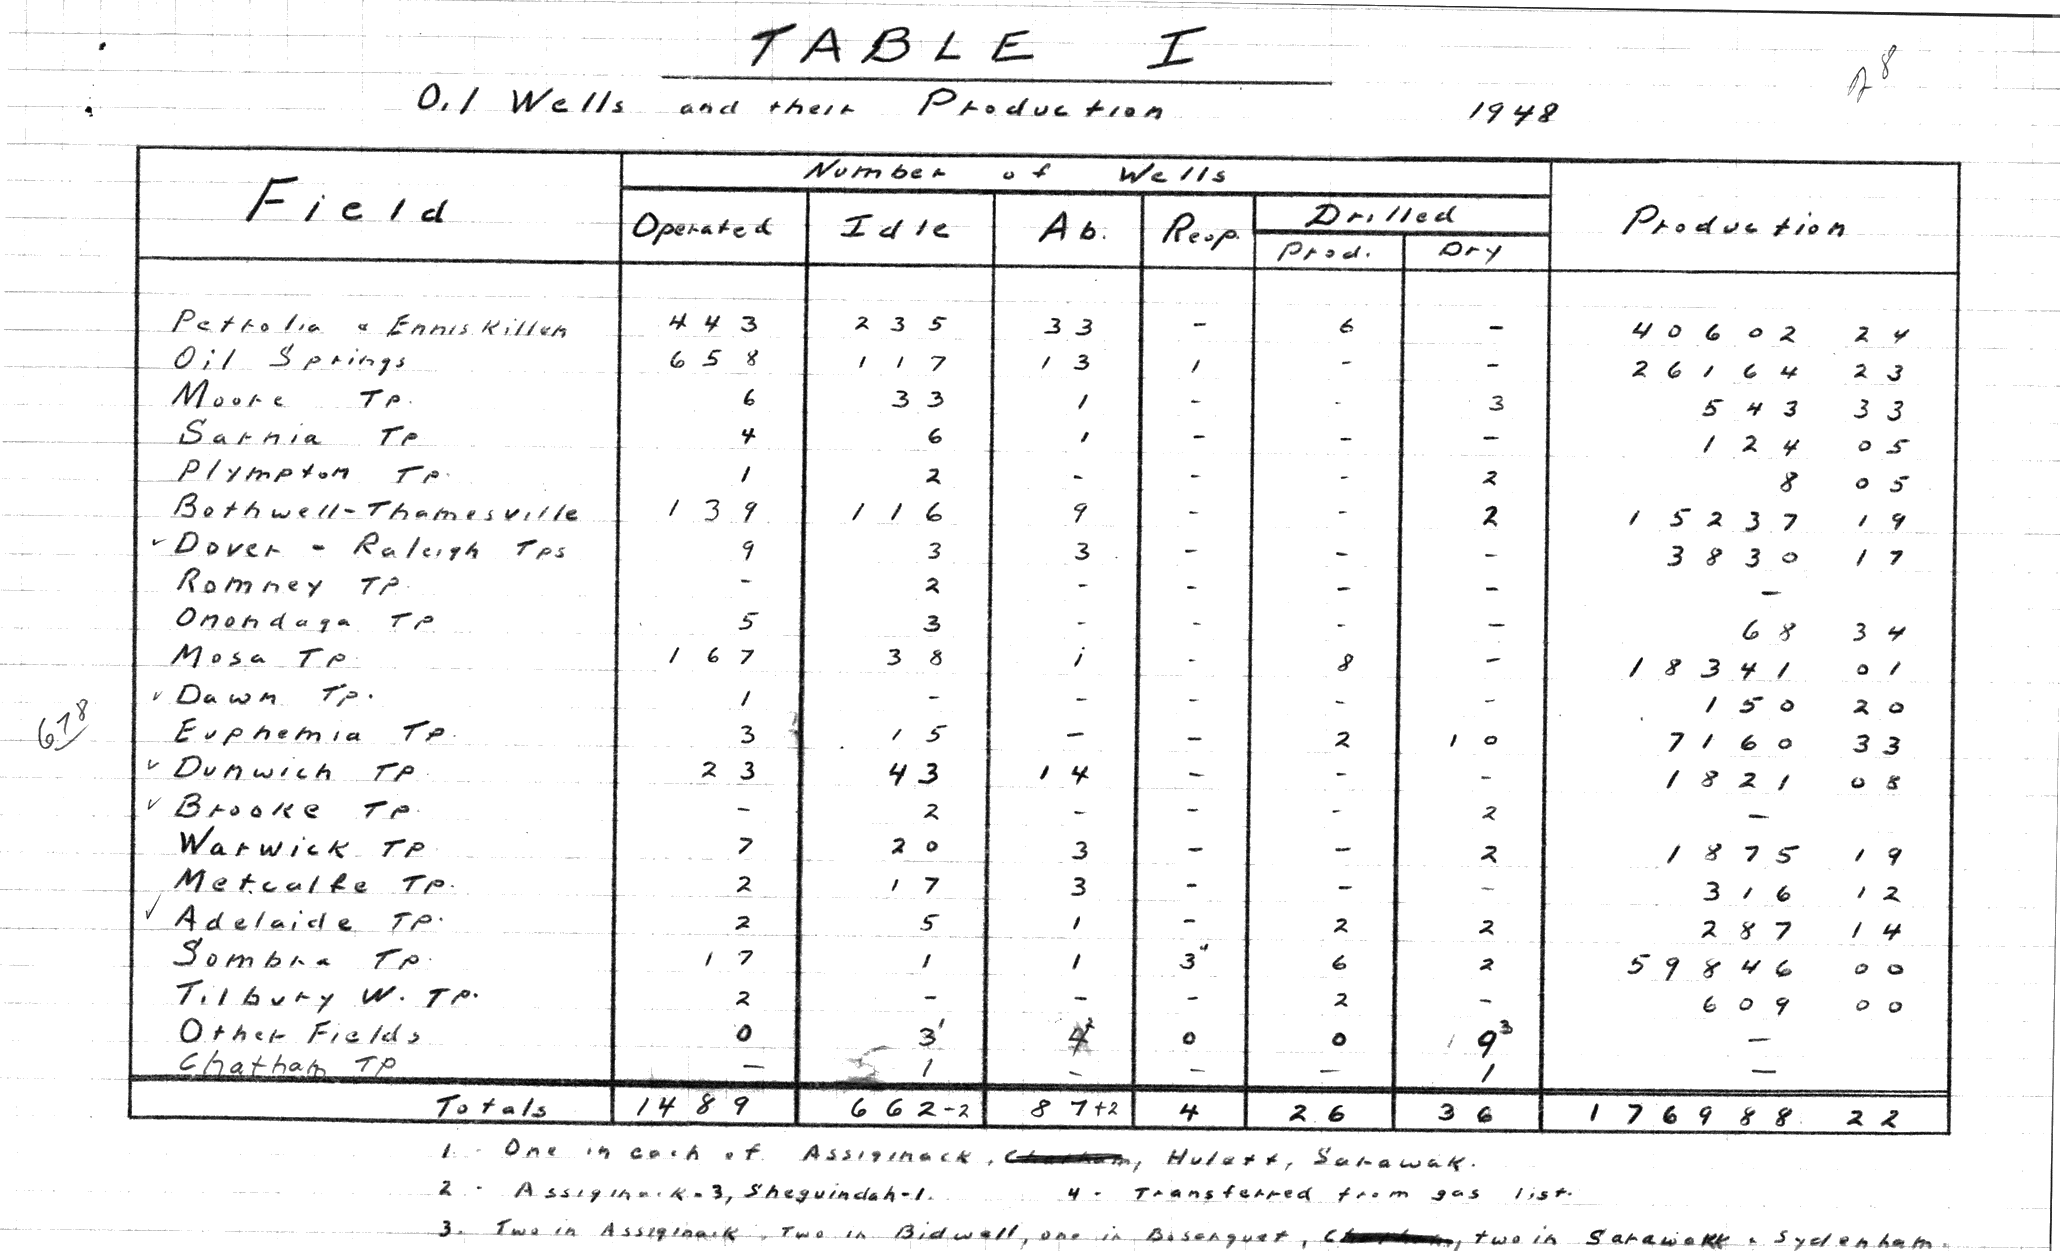 TABLE I
Oil Wells and their Production 1948
Field Number of Wells Production
Operated Idle Ab. Reop. Drilled
Prod. Dry
Petrolia & Enniskillen 443 235 33 - 6 - 40602 24
Oil Springs 658 117 13 1 - - 26164 23
Moore Tp. 6 33 1 - - 3 543 33
Sarnia Tp 4 6 1 - - - 124 05
Plympton Tp. 1 2 - - - 2 8 05
Bothwell-Thamesville 139 116 9 - - 2 15237 19
✓ Dover - Raleigh Tps 9 3 3 - - - 3830 17
Romney Tp. - 2 - - - - -
Onondaga Tp 5 3 - - - - 68 34
Mosa Tp. 167 38 1 - 8 - 18341 01
✓ Dawn Tp. 1 - - - - - 150 20
678
Euphemia Tp. 3 15 - - 2 10 7160 33
✓ Dunwich Tp 23 43 14 - - - 1821 08
✓ Brooke Tp. - 2 - - - 2 -
Warwick Tp 7 20 3 - - 2 1875 19
Metcalfe Tp. 2 17 3 - - - 316 12
✓ Adelaide Tp. 2 5 1 - 2 2 287 14
Sombra Tp. 17 1 1 3⁴ 6 2 59846 00
Tilbury W. Tp. 2 - - - 2 - 609 00
Other Fields 0 3¹ 4² 0 0 9³ -
Chatham TP - 1 - - - 1 -
Totals 1489 662-2 87+2 4 26 36 176988 22
1 - One in each of Assiginack, Chatham, Hulett, Sarawak.
2 - Assiginack-3, Sheguindah-1. 4 - Transferred from gas list.
3. Two in Assiginack, Two in Bidwell, one in Bosanquet, Chatham, two in Sarawak & Sydenham.